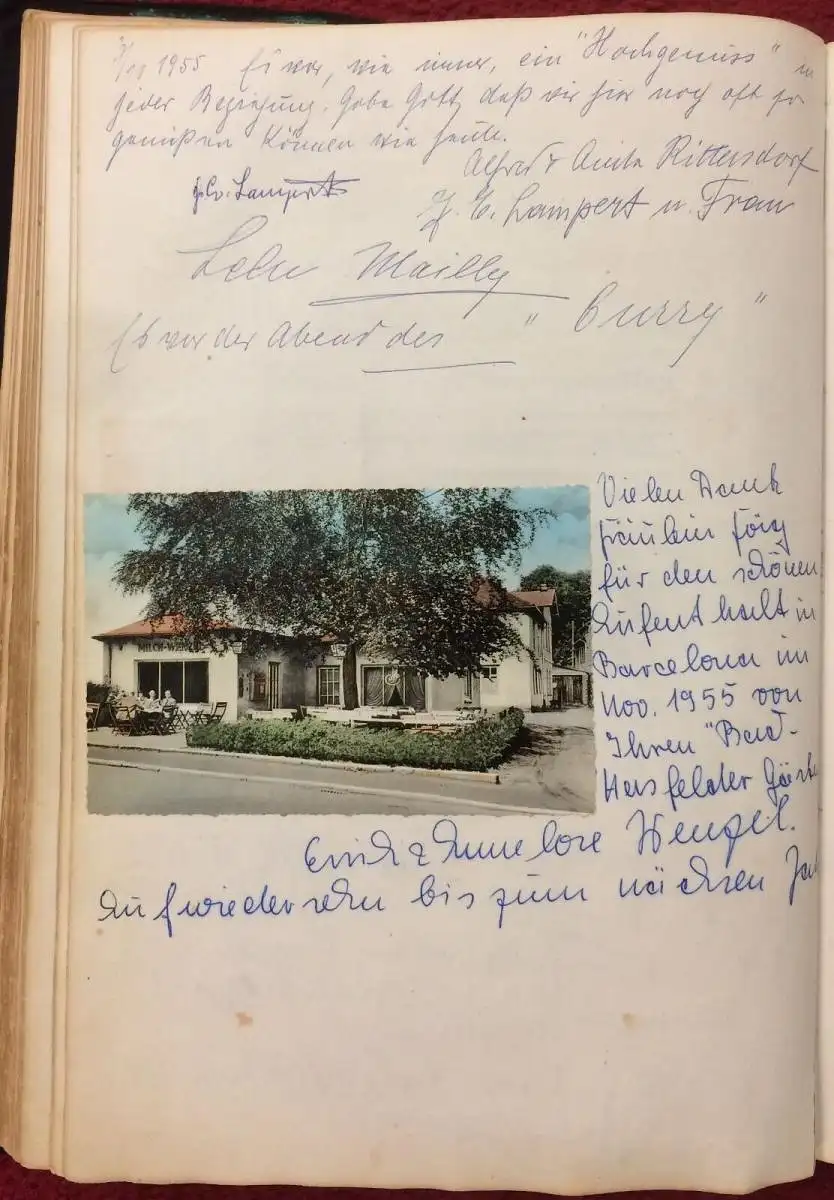 1955 Es war, wie immer, ein "Hochgenuss" in
jeder Beziehung. Gebe Gott, daß wir hier noch oft so
genießen können wie heute.
Alfred & Anita Rittersdorf
v. Lampert
J. E. Lampert u. Frau
Mailly
Es war der Abend des "Curry"
MILCH-
Vielen Dank
Fräulein
für den schönen
Aufenthalt in
Barcelona im
Nov. 1955 von
Ihren "Bad-
Hersfelder Gäste
Erich & Annelore Wenzel.
Auf wiedersehn bis zum nächsen